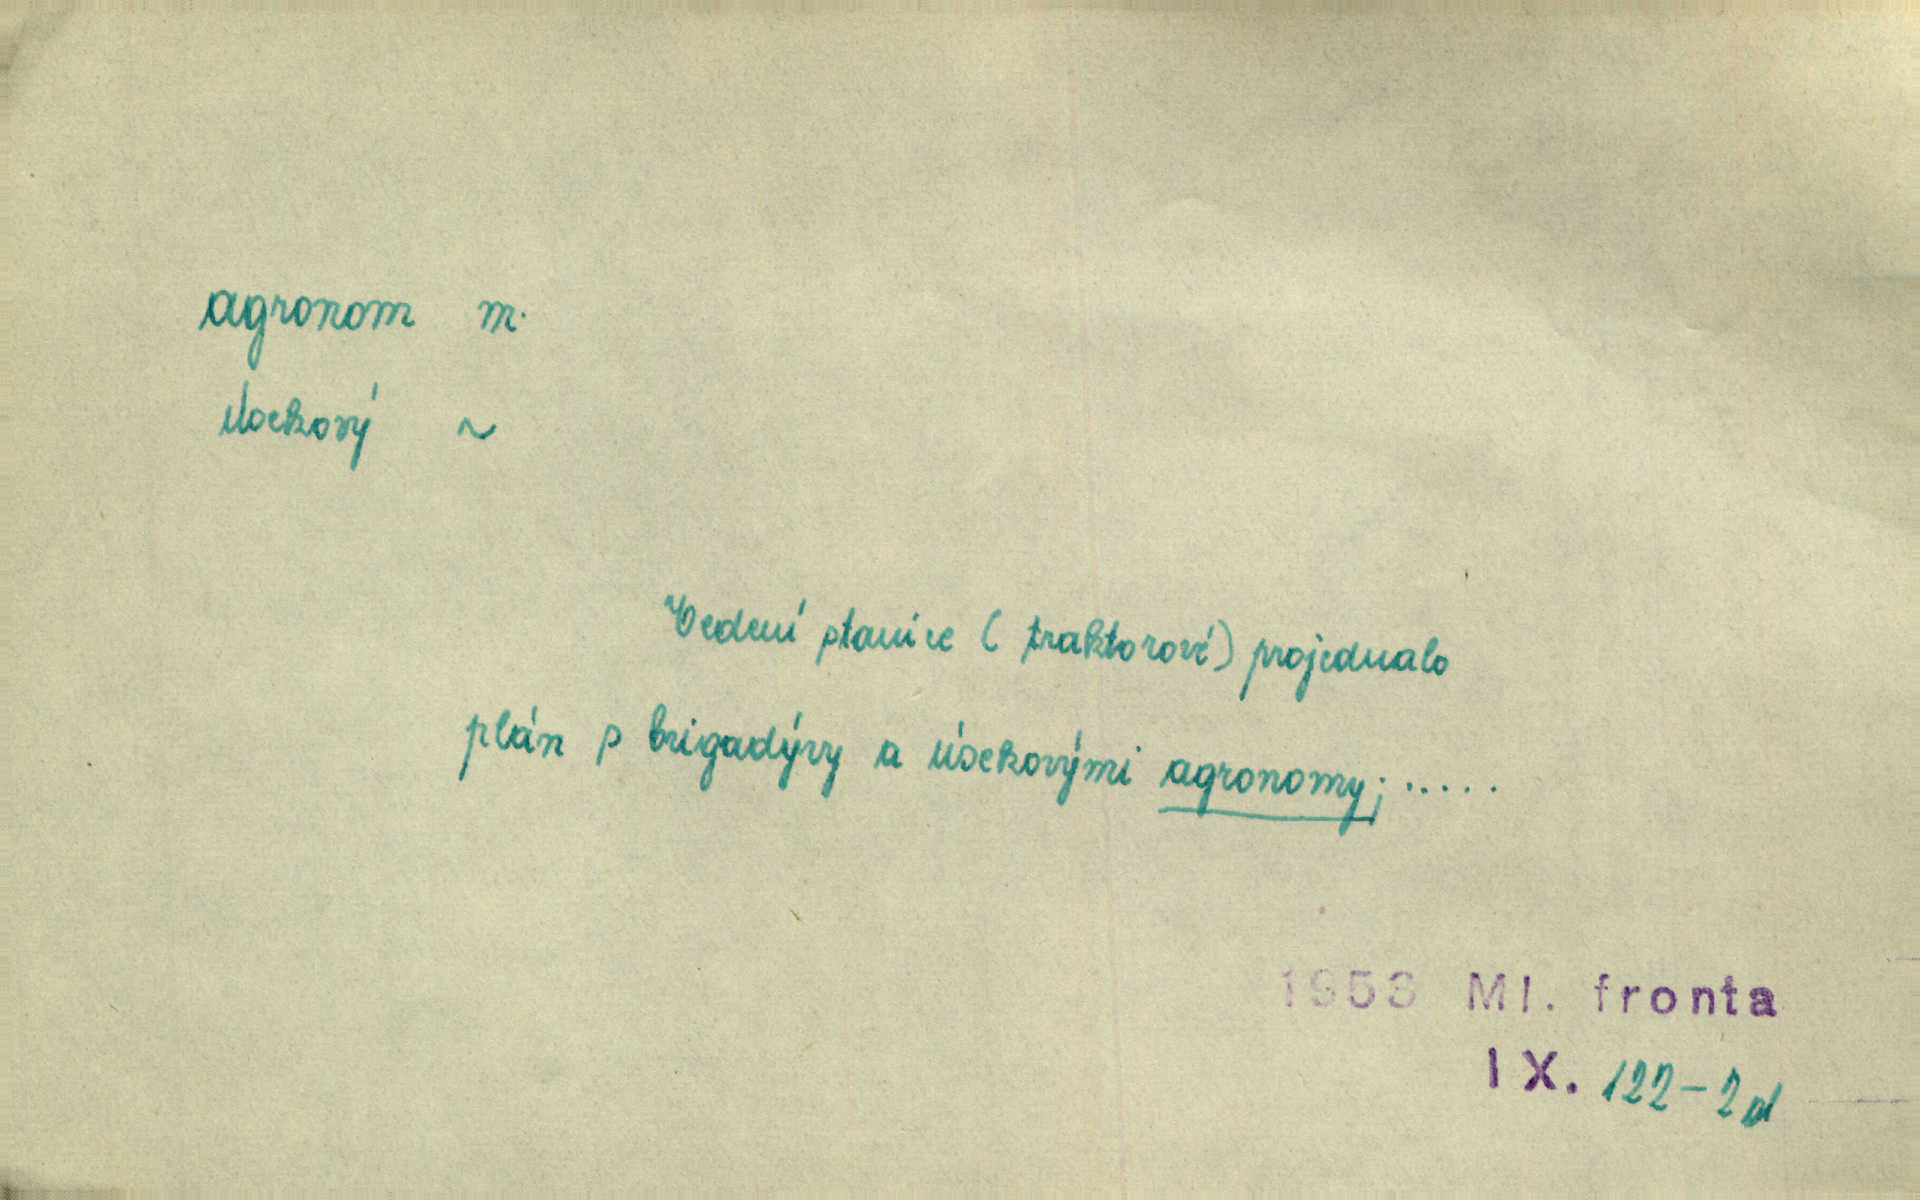 agronom m.
úsekový ~
Vedení stanice (traktorové) projednalo
plán s brigadýry a úsekovými agronomy; .....
1953 Ml. fronta
IX. 122-2d